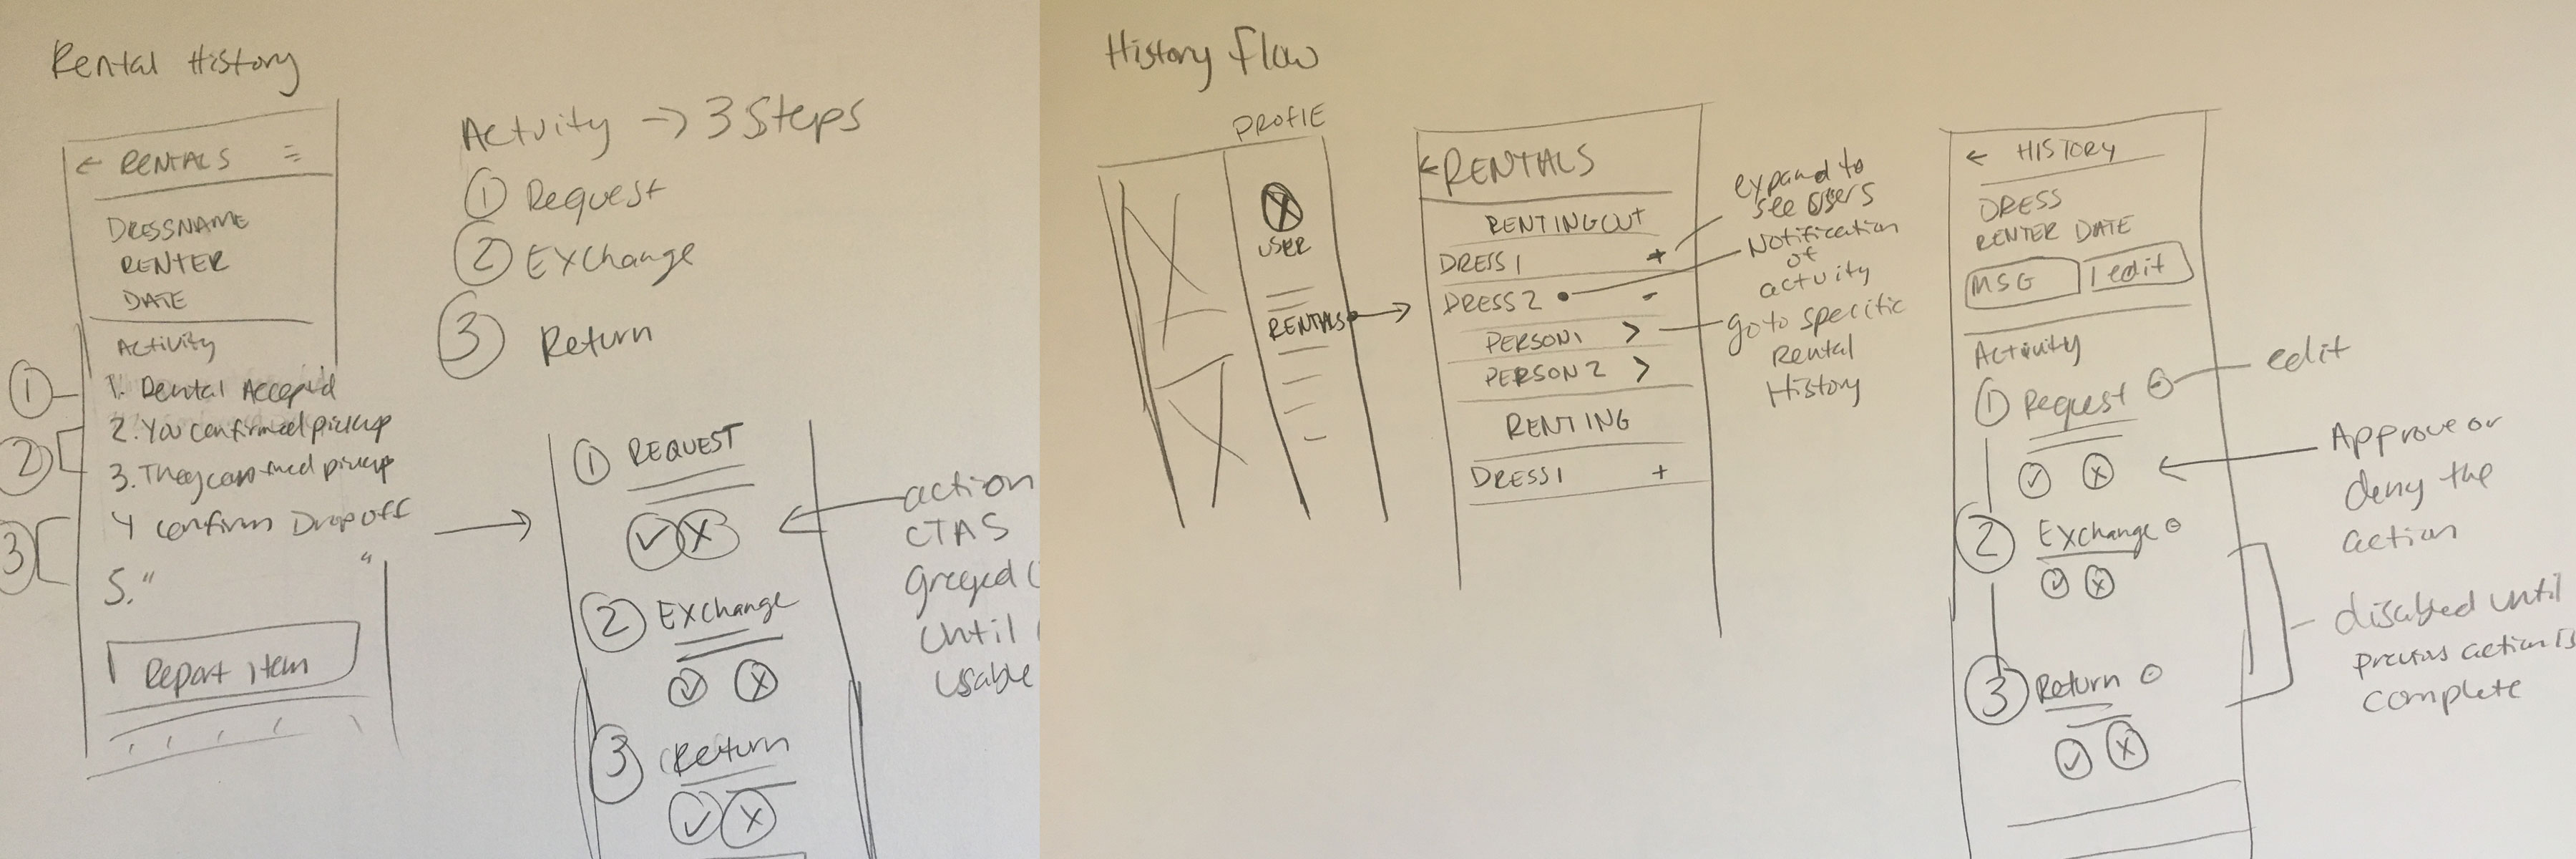 Rental History
← RENTALS
DRESSNAME
RENTER
DATE
Activity
1. Rental Accepted
2. You confirmed pickup
3. They confirmed pickup
4 confirm Dropoff
5. " "
Report item
1
2
3
Activity → 3 Steps
1 Request
2 Exchange
3 Return
1 REQUEST
2 Exchange
3 Return
action
CTAS
greyed
until
usable
History Flow
PROFIE
USER
RENTALS
← RENTALS
RENTING OUT
DRESS 1 +
DRESS 2 -
PERSON 1 >
PERSON 2 >
RENTING
DRESS 1 +
expand to
see users
Notification
of
activity
go to specific
Rental
History
← HISTORY
DRESS
RENTER DATE
MSG
edit
Activity
1 Request
2 Exchange
3 Return
edit
Approve or
deny the
action
disabled until
previous action is
complete